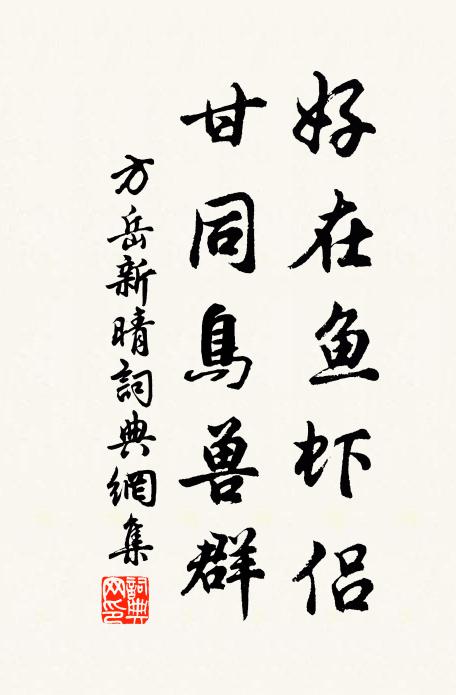 好在鱼虾侣
甘同鳥兽群
方岳新晴詞典網集
詞典網印